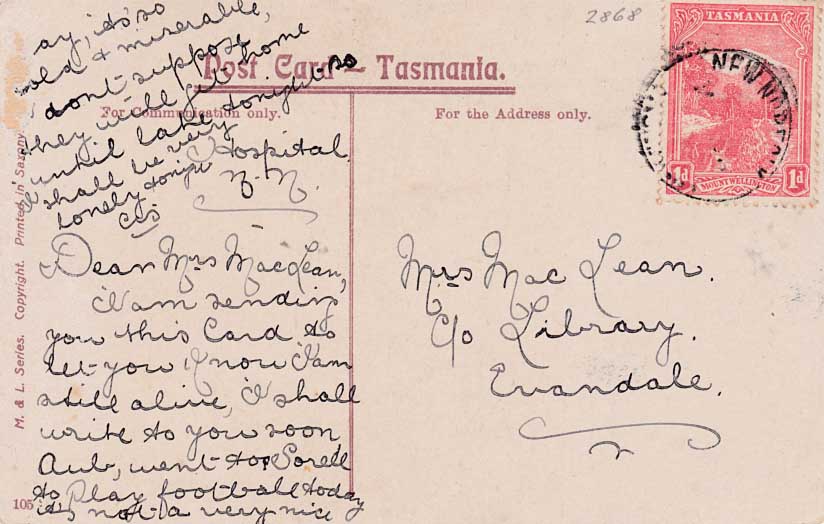 2868
TASMANIA
NEW NORFOLK
1d MOUNT WELLINGTON 1d
Post Card — Tasmania.
For Communication only.
For the Address only.
M. & L. Series. Copyright. Printed in Saxony
105
Hospital.
N. N.
Dear Mrs MacLean,
I am sending
you this Card to
let you know I am
still alive, I shall
write to you soon,
Aub, went to Sorell
to play football today
it's not a very nice
ay, it's so
old & miserable,
I dont suppose
they will get home
until late tonight so
I shall be very
lonely tonight
Mrs Mac Lean.
C/o Library.
Evandale.